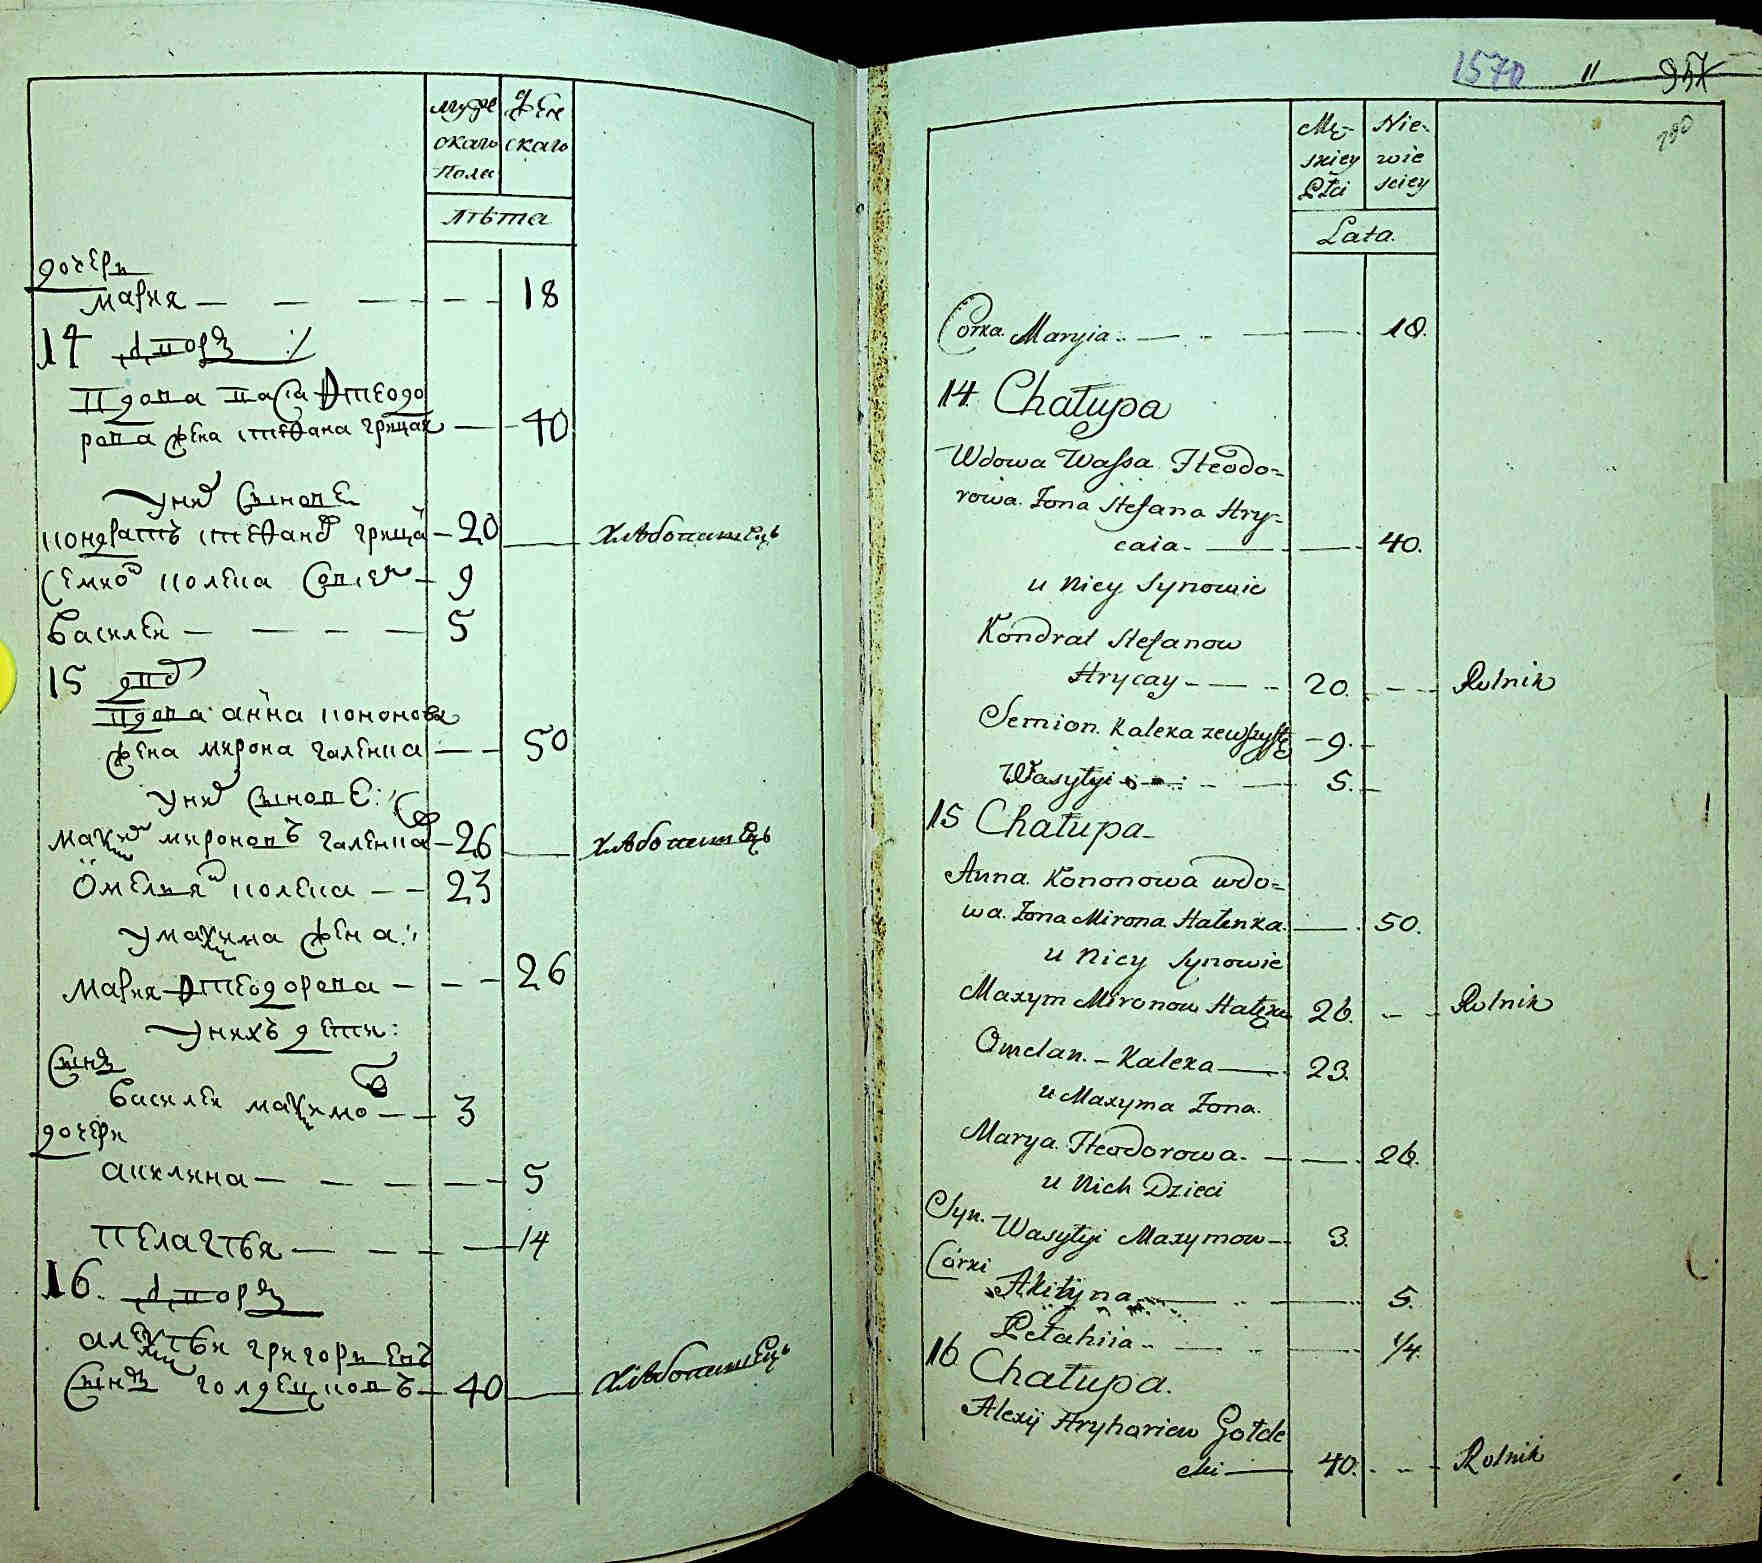 мужескаго
Пола
женскаго
лѣта
дочери
мария — — — — 18
14 дворъ
Вдова Васса Ѳтеодо
рова жена стефана грицая — 40
У ней Сынове
кондратъ стефановъ грицай — 20 — хлѣбопашецъ
Семионъ калека — 9
Василей — — — — 5
15 дворъ
Вдова анна кононова
жена мирона галенка — — 50
У ней Сынове:
максимъ мироновъ галенка — 26 — хлѣбопашецъ
Омелиянъ калека — — 23
У максима жена:
Мария Ѳтеодорова — — — 26
У нихъ дети:
Сынъ
Василей максимовъ — — 3
дочери
акилина — — — — — 5
Пелагѣя — — — — 1/4
16. дворъ
алексѣй григориевъ
Сынъ голдецковъ — 40 — хлѣбопашецъ
1570 11 957
Mę-
skiey
Płci
Nie-
wie
sciey
Lata.
Corka. Maryia — — 18.
14. Chałupa
Wdowa Wassa Fteodo-
rowa. Żona Stefana Hry-
caia — — 40.
u Niey Synowie
Kondrat Stefanow
Hrycay — — 20. — Rolnik
Semion. Kaleka zewszystkę — 9.
Wasylyi — 5.
15 Chałupa
Anna. Kononowa wdo-
wa. Żona Mirona Halenka. — 50.
u Niey Synowie
Maxym Mironow Halenka 26. — Rolnik
Omelan. — Kaleka — 23.
u Maxyma Żona.
Marya. Fteodorowa. — — 26.
u Nich Dzieci
Syn. Wasylyi Maxymow — 3.
Córki
Akilyna — — 5.
Pelahiia — — 1/4.
16 Chałupa.
Alexij Hryhoriew Gołde
cki — 40. — Rolnik